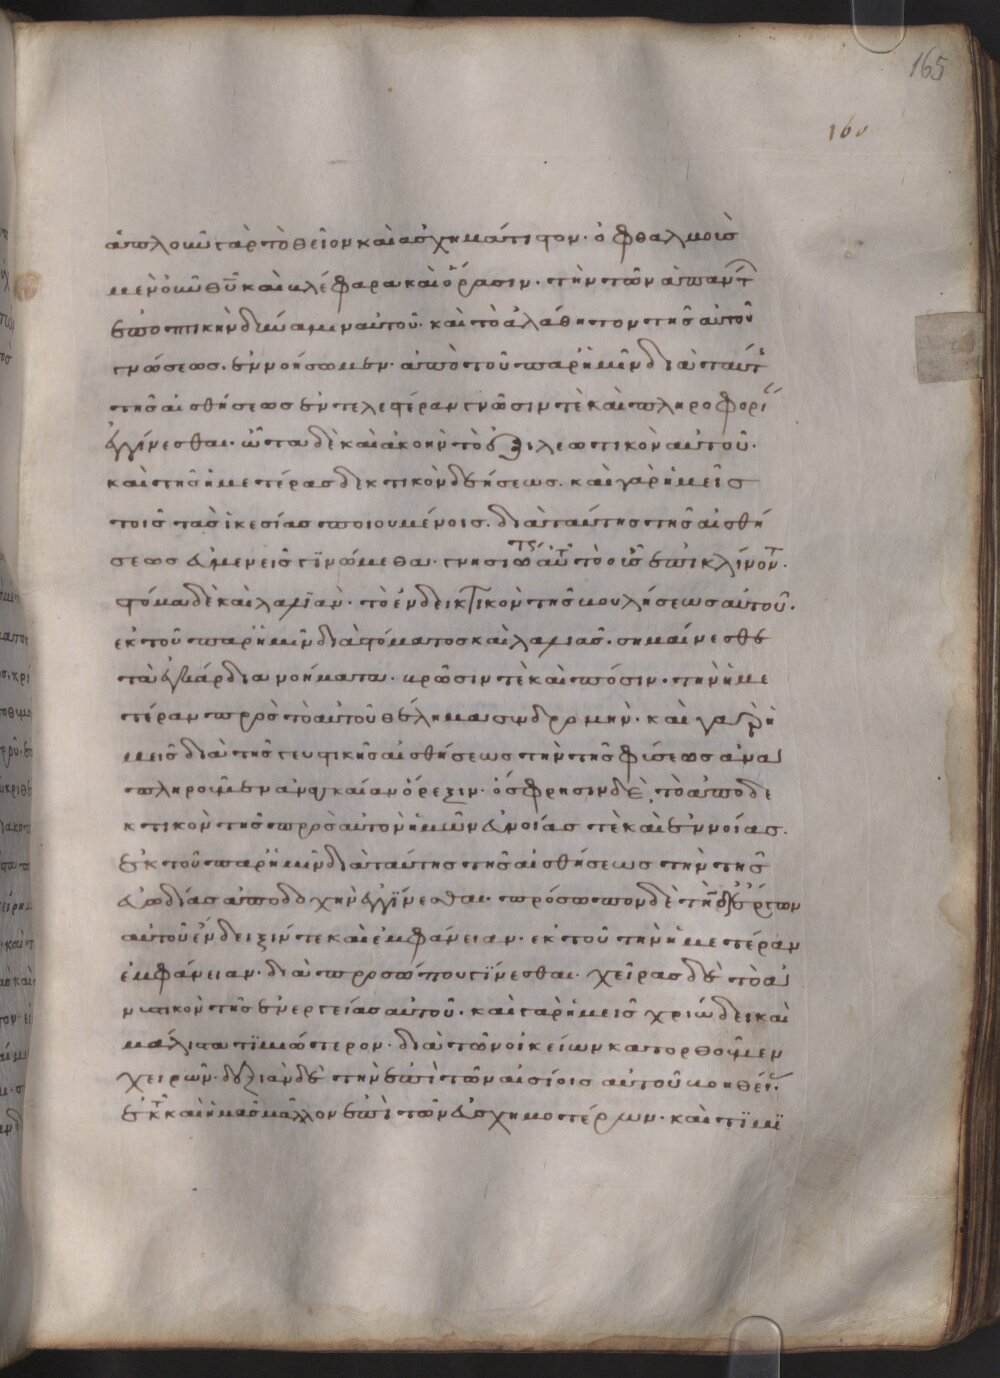 ἁπλοῦν γὰρ τὸ θεῖον καὶ ἀσχημάτιστον· ὀφθαλμοὺς
μὲν οὖν θυ καὶ βλέφαρα καὶ ὅρασιν· τὴν τῶν ἁπάντ
ἐποπτικὴν δύναμιν αὐτοῦ· καὶ τὸ ἀλάθητον τῆς αὐτοῦ
γνώσεως. ἐννοήσωμεν· ἀπὸ τοῦ παρ ἡμῖν διὰ ταύτ
τῆς αἰσθήσεως ἐντελεστέραν γνῶσιν τὲ καὶ πληροφορί
ἐγγίνεσθαι· ὦτα δὲ καὶ ἀκοὴν τὸ ἐξιλεωτικὸν αὐτοῦ·
καὶ τῆς ἡμετέρας δεκτικὸν δεήσεως. καὶ γὰρ ἡμεῖς
τοῖς τὰς ἱκεσίας ποιουμένοις. διὰ ταύτης τῆς αἰσθή
σεως εὐμενεῖς γϊνώμεθα· γνησιώτς αὐτ τὸ οὖς ἐπικλίνοντ·
στόμα δὲ καὶ λαλϊὰν· τὸ ἐνδεικτικὸν τῆς βουλήσεως αὐτοῦ·
ἐκ τοῦ παρ ἡμῖν διὰ στόματος καὶ λαλιᾶς. σημαίνεσθε
τὰ ἐγκάρδια νοήματα. βρῶσιν τὲ καὶ πόσιν· τὴν ἡμε
τέραν πρὸς τὸ αὐτοῦ θέλημα συνδρομὴν· καὶ γαρ ἡ
μεῖς διὰ τῆς γευστικῆς αἰσθήσεως τὴν τῆς φύσεως ἀνα
πληροῦμεν ἀναγκαίαν ὄρεξιν· ὄσφρησιν δὲ, τὸ ἀποδε
κτικὸν τῆς πρὸς αὐτὸν ἡμῶν εὐνοίας τὲ καὶ ἐννοίας.
ἐκ τοῦ παρ ἡμῖν διὰ ταύτης τῆς αἰσθήσεως τὴν τῆς
εὐωδίας ἀποδοχὴν ἐγγϊνεσθαι· πρόσωπον δὲ τὴν δι ἔργων
αὐτοῦ ἔνδειξίν τε καὶ ἐμφάνειαν· ἐκ τοῦ τὴν ἡμετέραν
ἐμφάνειαν· διὰ προσώπου γϊνεσθαι· χεῖρας δὲ τὸ ἀ
νυτικὸν τῆς ἐνεργείας αὐτοῦ· καὶ γὰρ ἡμεῖς χριώδει καὶ
μάλιστα τϊμιώτερον· διὰ τῶν οἰκείων κατορθοῦμεν
χειρῶν· δεξιὰν δὲ τὴν ἐπὶ τῶν αἰσίοις αὐτοῦ βοηθεί·
ἐκ τ καὶ ἡμᾶς μᾶλλον ἐπὶ τῶν εὐσχημοτέρων· καὶ τϊμϊ
165